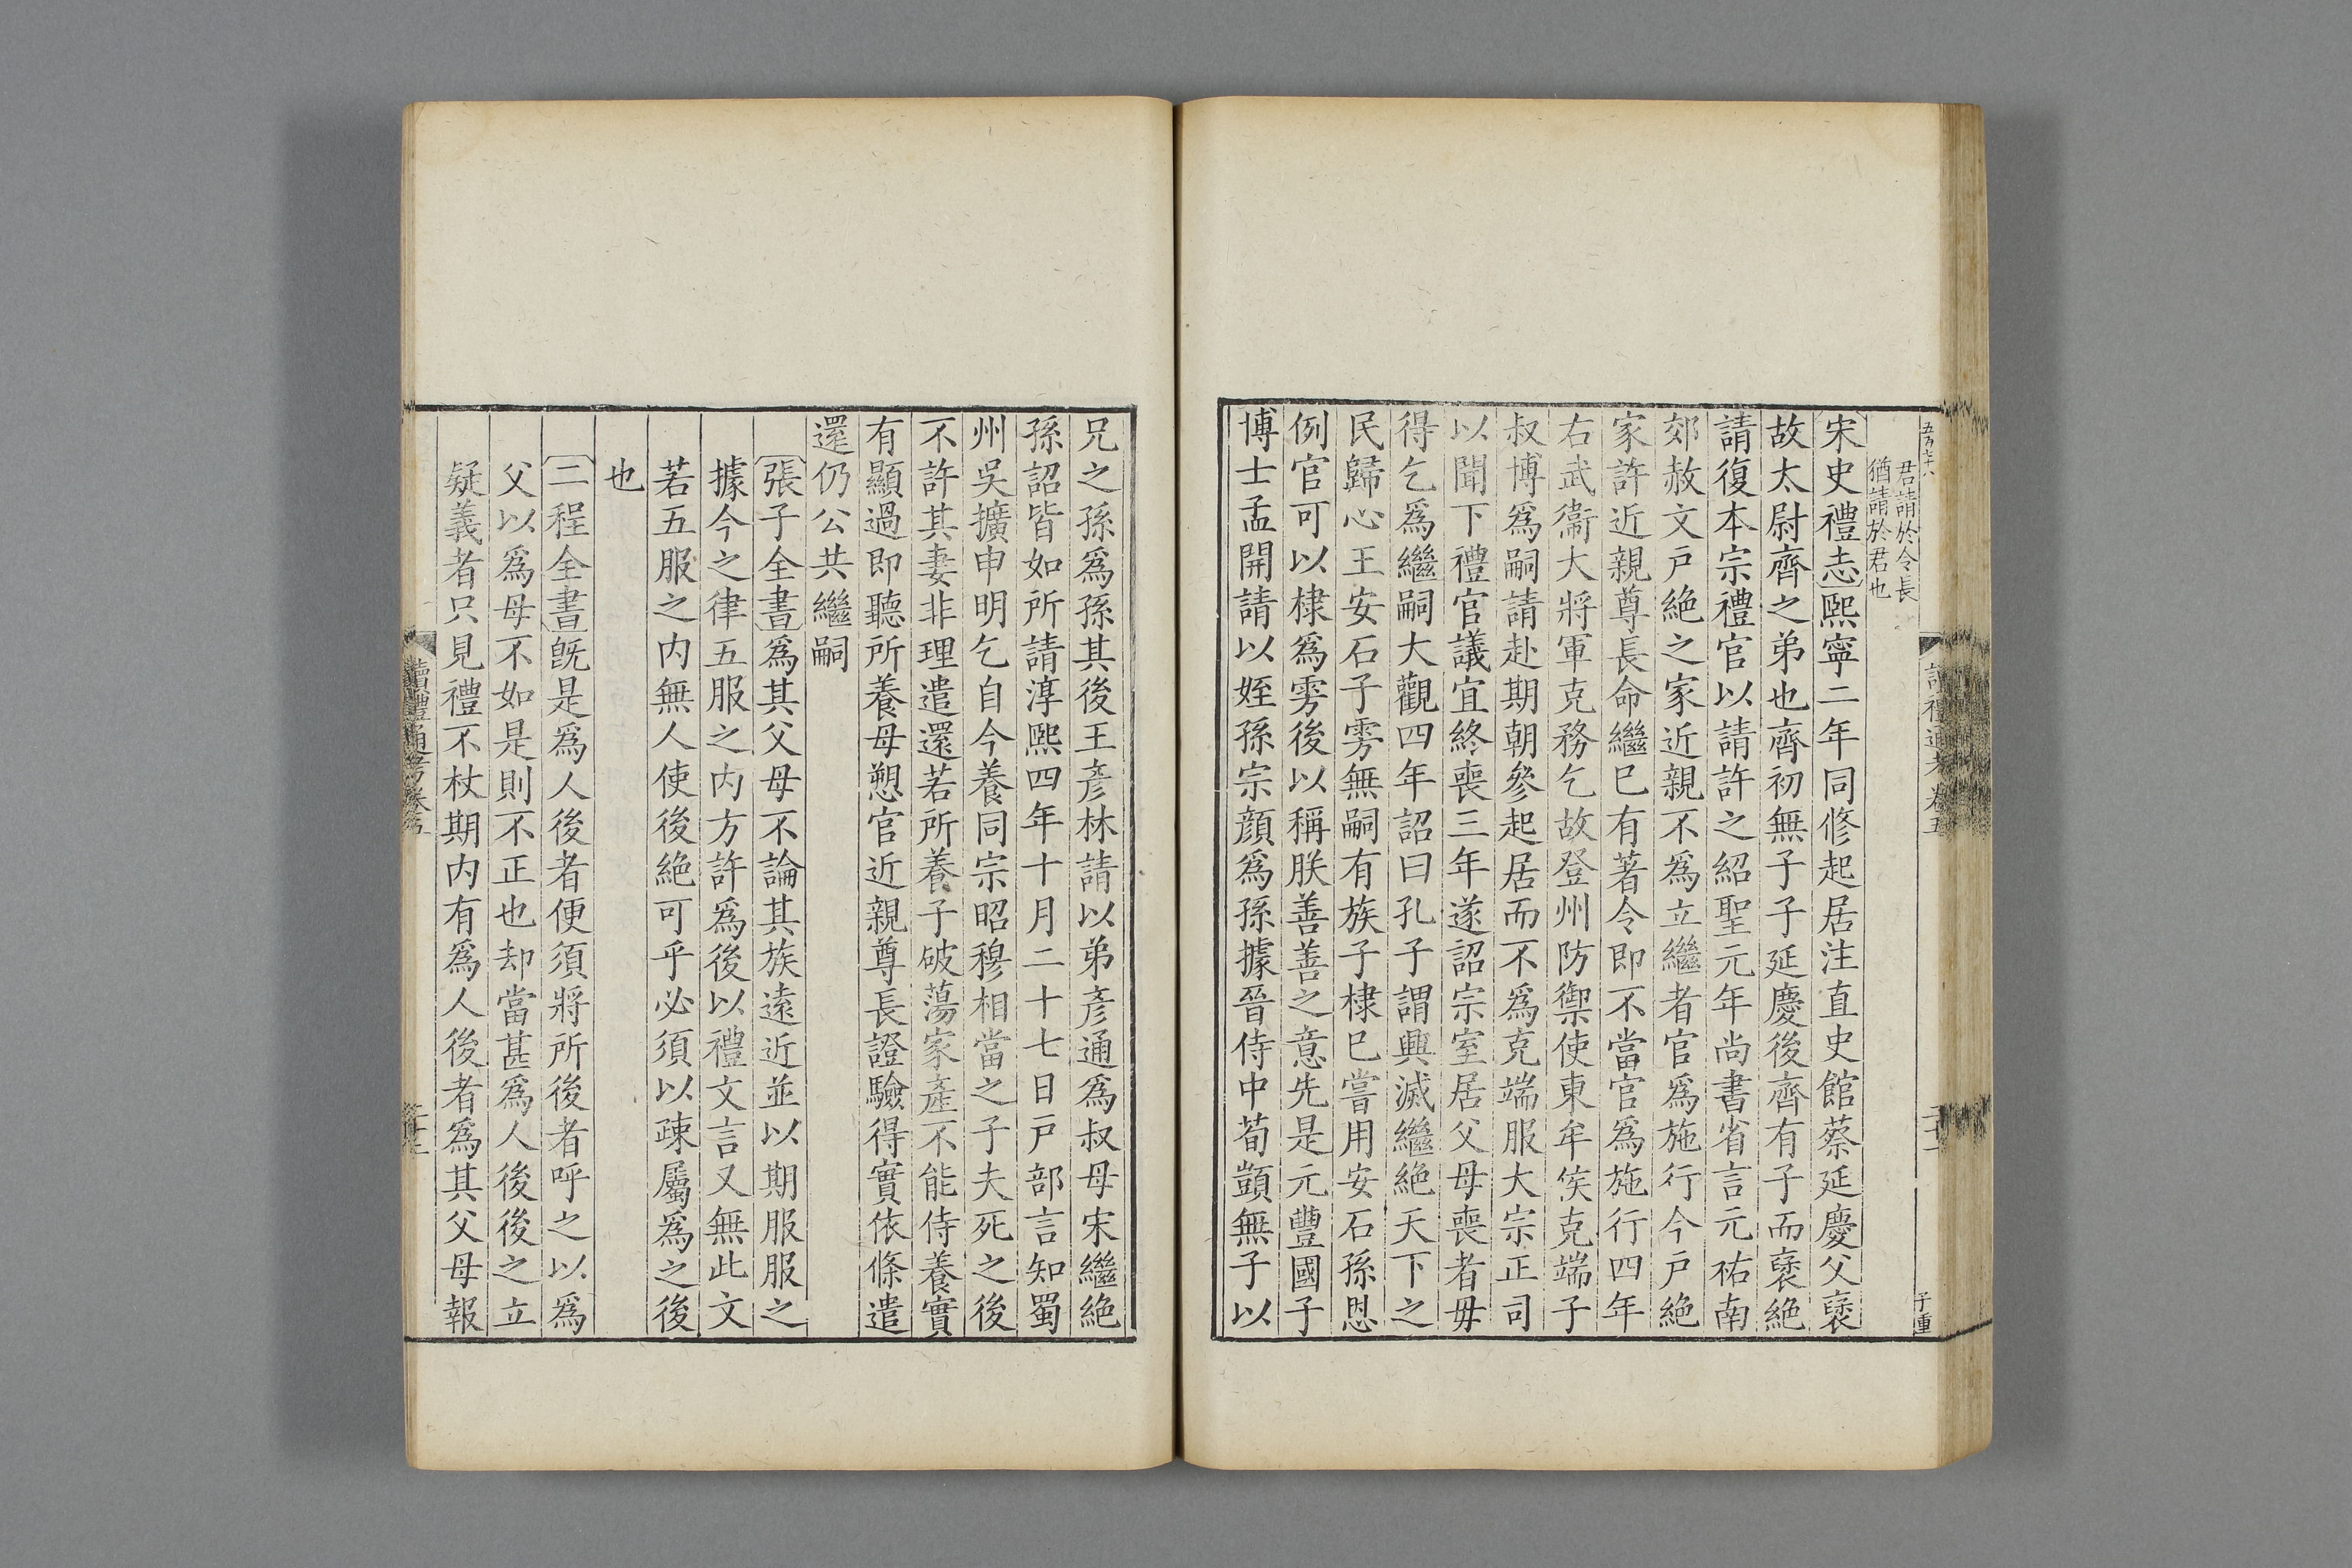 君請於令長
猶請於君也
宋史禮志熙寧二年同修起居注直史館蔡延慶父襃
故太尉齊之弟也齊初無子子延慶後齊有子而襃絶
請復本宗禮官以請許之紹聖元年尚書省言元祐南
郊赦文戸絶之家近親不爲立繼者官爲施行今戸絶
家許近親尊長命繼已有著令即不當官爲施行四年
右武衞大將軍克務乞故登州防禦使東牟侯克端子
叔博爲嗣請赴期朝參起居而不爲克端服大宗正司
以聞下禮官議宜終喪三年遂詔宗室居父母喪者毋
得乞爲繼嗣大觀四年詔曰孔子謂興滅繼絶天下之
民歸心王安石子雱無嗣有族子棣已嘗用安石孫恩
例官可以棣爲雱後以稱朕善善之意先是元豐國子
博士孟開請以姪孫宗顔爲孫據晉侍中荀顗無子以
兄之孫爲孫其後王彦林請以弟彦通爲叔母宋繼絶
孫詔皆如所請淳熙四年十月二十七日戸部言知蜀
州吳擴申明乞自今養同宗昭穆相當之子夫死之後
不許其妻非理遣還若所養子破蕩家產不能侍養實
有顯過即聽所養母愬官近親尊長證驗得實依條遣
還仍公共繼嗣
張子全書爲其父母不論其族遠近並以期服服之
據今之律五服之内方許爲後以禮文言又無此文
若五服之内無人使後絶可乎必須以疎屬爲之後
也
二程全書旣是爲人後者便須將所後者呼之以爲
父以爲母不如是則不正也却當甚爲人後後之立
疑義者只見禮不杖期内有爲人後者爲其父母報